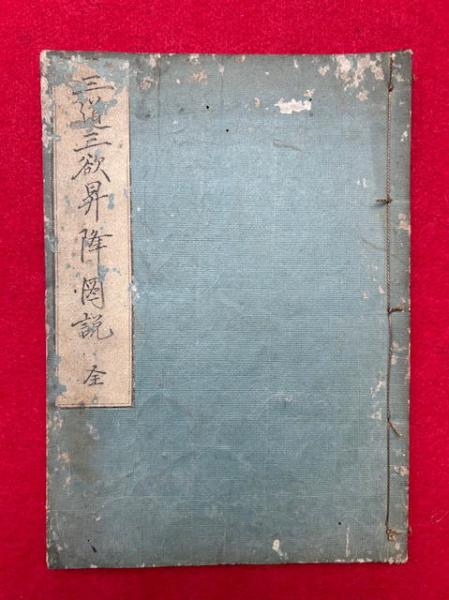 三道三欲昇降図説 全